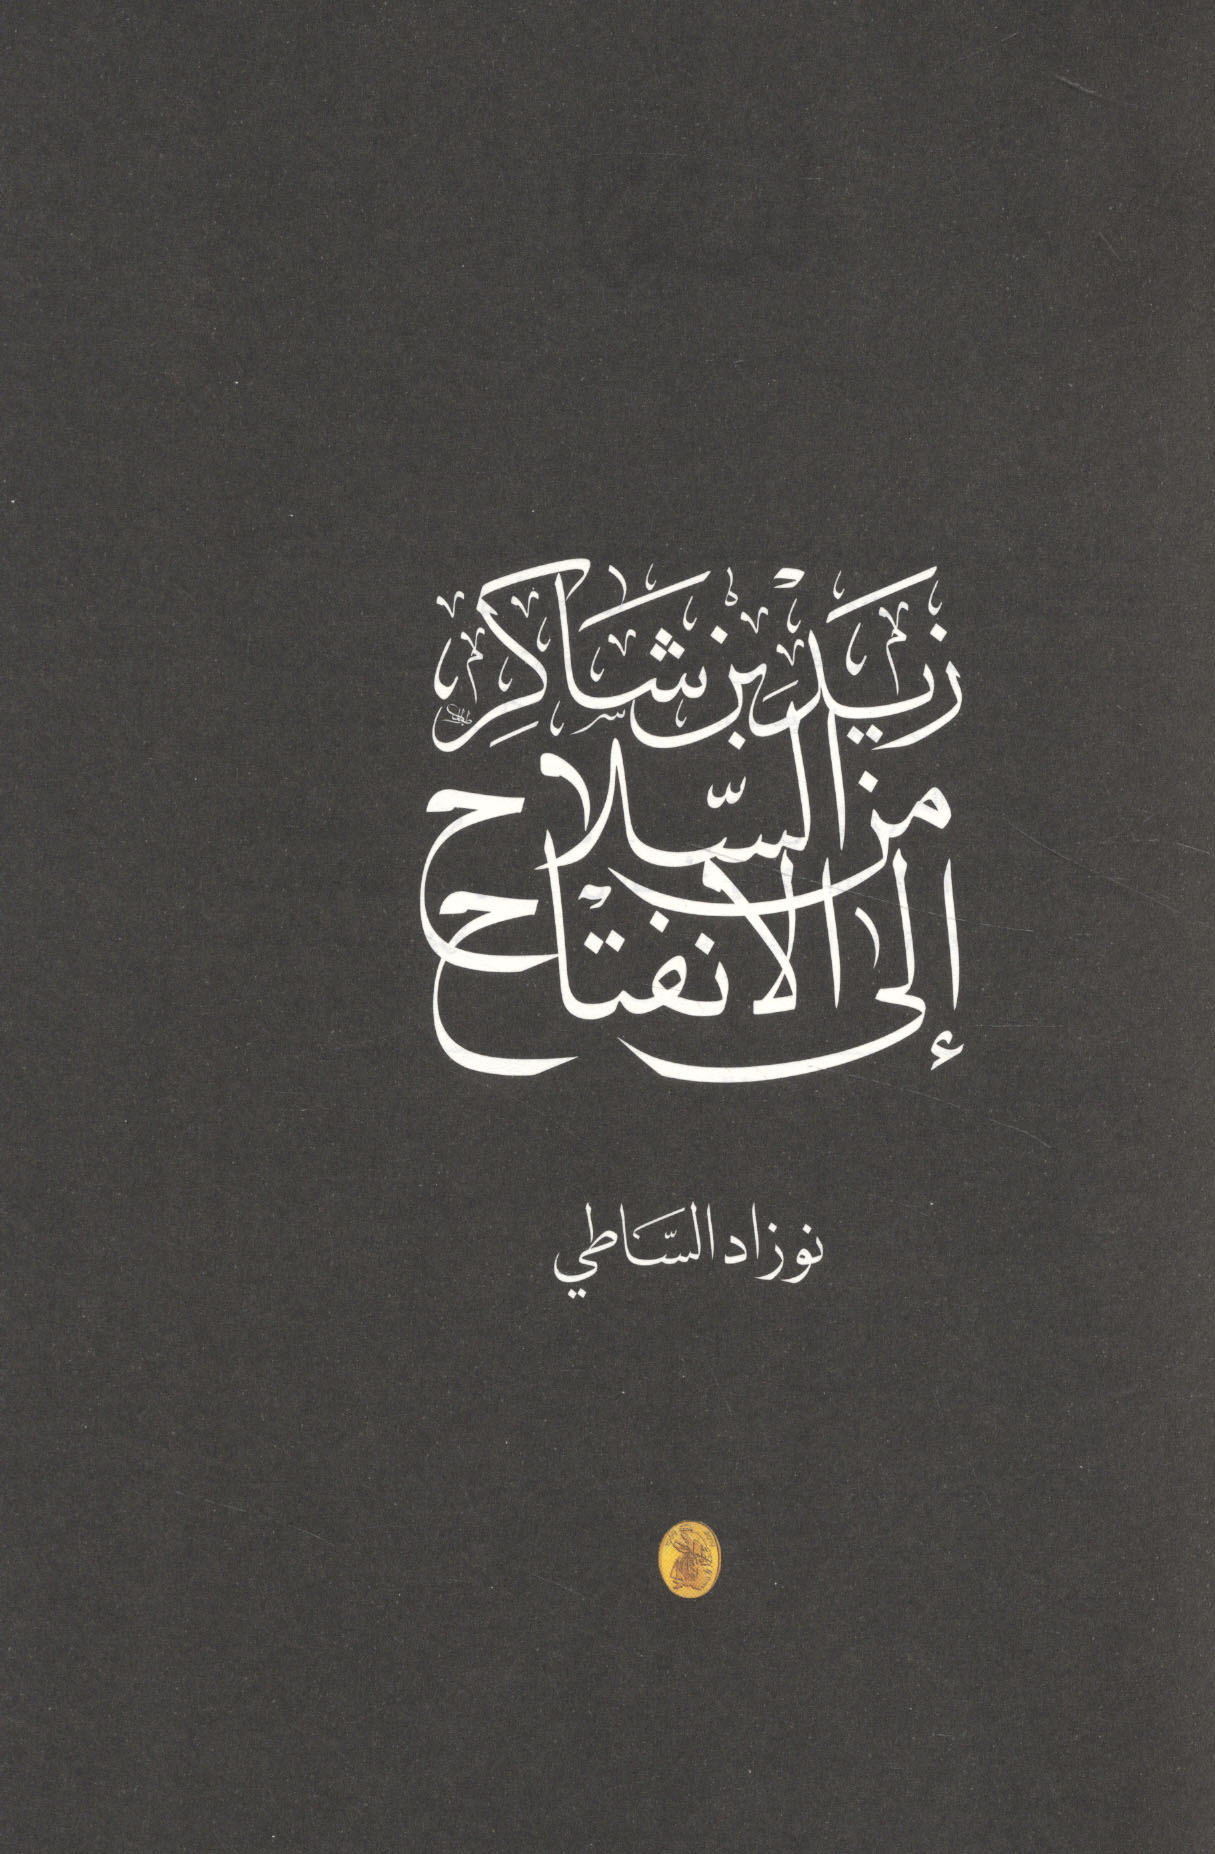 زيد بن شاكر
من السلاح
إلى الانفتاح
نوزاد الساطي